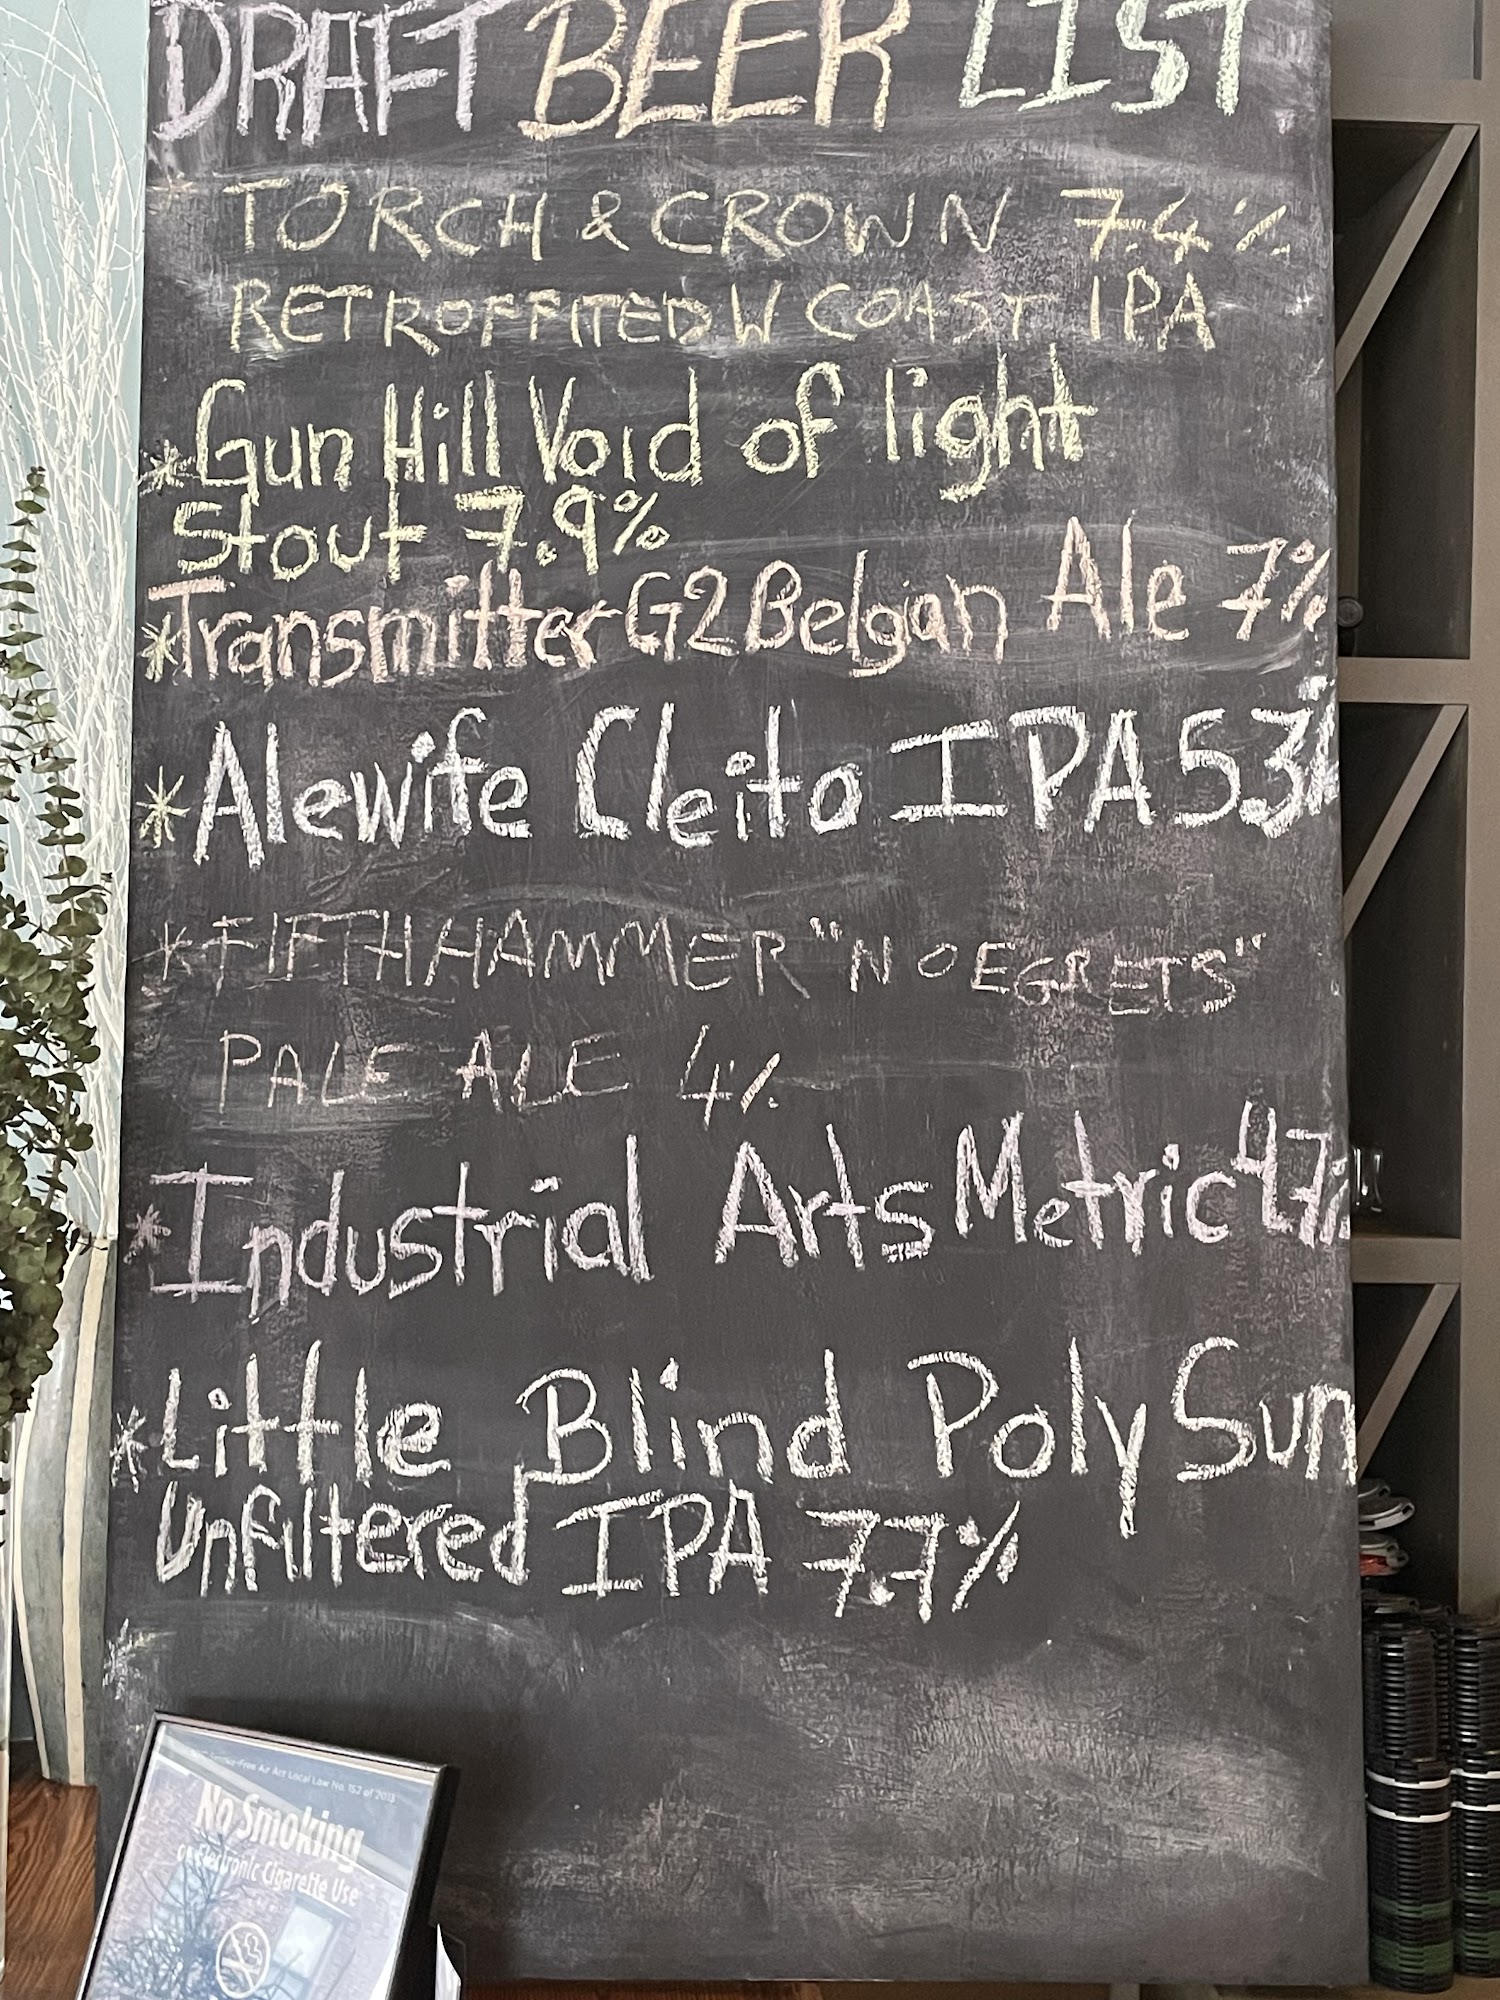 DRAFT BEER LIST
TORCH & CROWN 7.4%
RETROFFITED W COAST IPA
*Gun Hill Void of light
Stout 7.9%
*Transmitter G2 Belgian Ale 7%
*Alewife Cleito IPA 5.3%
*FIFTH HAMMER "NO EGRETS"
PALE ALE 4%
*Industrial Arts Metric 4.7%
*Little Blind Poly Sun
Unfiltered IPA 7.7%
*
Smoke-Free Air Act Local Law No. 152 of 2013
No Smoking
or Electronic Cigarette Use